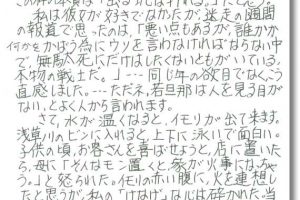 私は彼女が好きでなかったが、迷走の週間
の報道で思ったのは、「悪い点もあるが、誰かか
何かをかばう為にウソを言わなければならない中
で、無駄死にだけはしたくないともがいている。
本物の戦士だ。」……同じ年の欲目でなく、こう
直感しました。……ただネ、若旦那は人を見る目が
ない、とよく人から言われます。
さて、水が温くなると、イモリが出て来ます。
浅草川のビンに入れると、上下に泳いで面白い。
子供の頃、お客さんを喜ばせようと、店に置いた
ら、母に「そんなモン置くと家が火事になっちゃ
う。」と怒られた。イモリの赤い腹に、火を連想し
たと思うが、私の「けなげ」な心は砕かれた。当